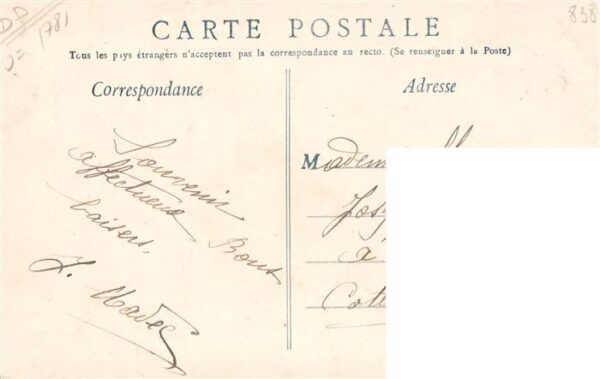 DD
J= 1781
838
CARTE POSTALE
Tous les pays étrangers n'acceptent pas la correspondance au recto. (Se renseigner à la Poste)
Correspondance
Adresse
Souvenir
affectueux Bons
baisers,
J.
Madem
Jos
à
Cote